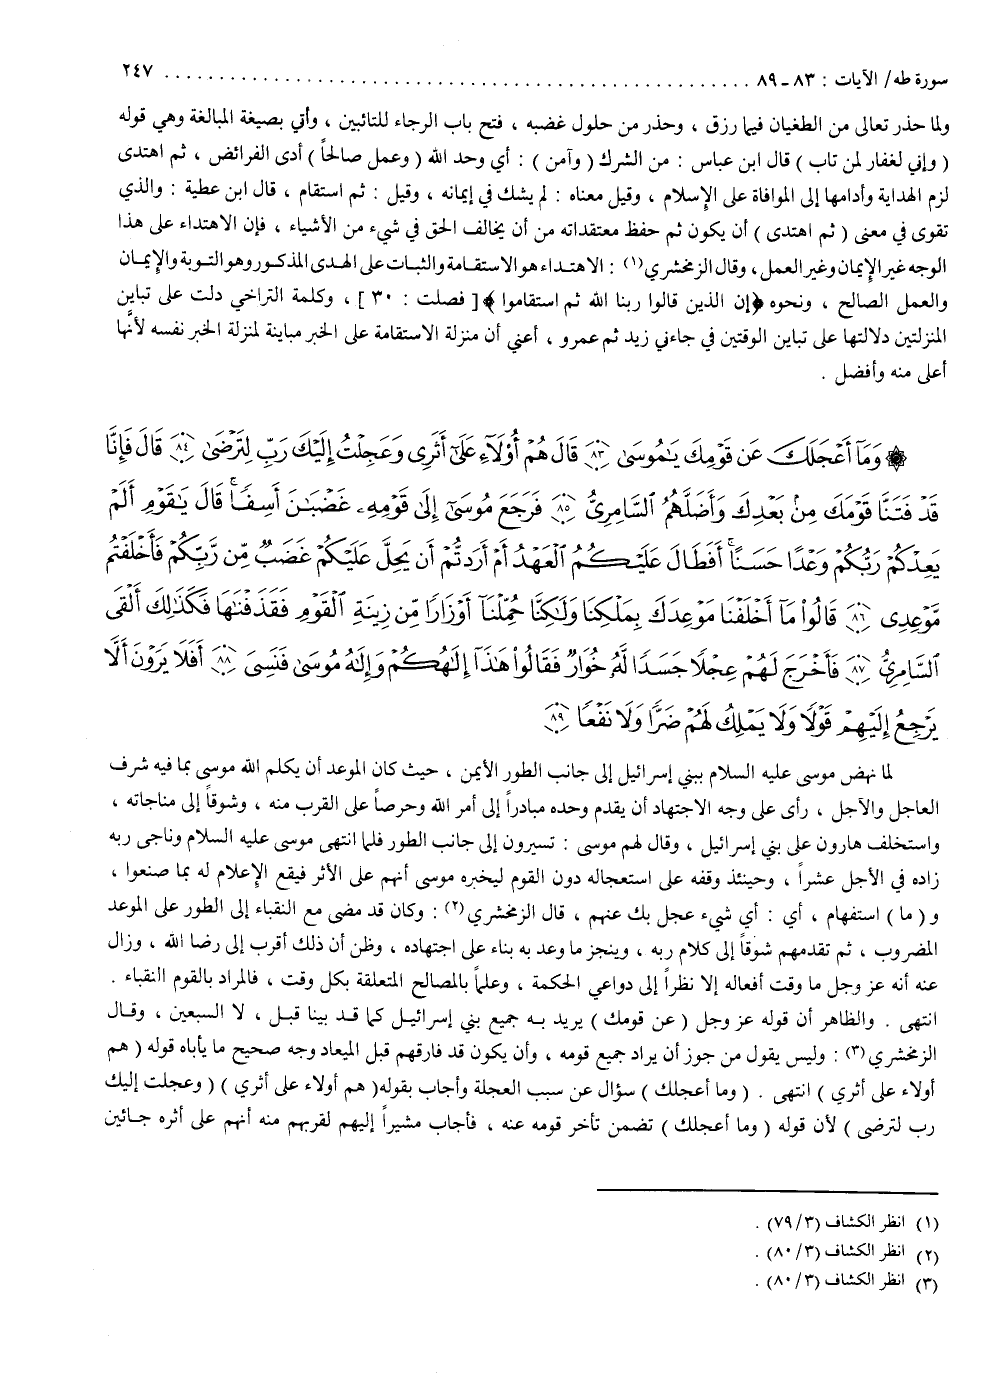 سورة طه/ الآيات : ٨٣ - ٨٩ ........................................................ ٢٤٧
ولما حذر تعالى من الطغيان فيما رزق ، وحذر من حلول غضبه ، فتح باب الرجاء للتائبين ، وأتي بصيغة المبالغة وهي قوله
( وإني لغفار لمن تاب ) قال ابن عباس : من الشرك ( وآمن ) : أي وحد الله ( وعمل صالحاً ) أدى الفرائض ، ثم اهتدى
لزم الهداية وأدامها إلى الموافاة على الإسلام ، وقيل معناه : لم يشك في إيمانه ، وقيل : ثم استقام ، قال ابن عطية : والذي
تقوى في معنى ( ثم اهتدى ) أن يكون ثم حفظ معتقداته من أن يخالف الحق في شيء من الأشياء ، فإن الاهتداء على هذا
الوجه غير الإيمان وغير العمل، وقال الزمخشري (١) : الاهتداء هو الاستقامة والثبات على الهدى المذكور وهو التوبة والإيمان
والعمل الصالح ، ونحوه ﴿إن الذين قالوا ربنا الله ثم استقاموا ﴾ [ فصلت : ٣٠ ] ، وكلمة التراخي دلت على تباين
المنزلتين دلالتها على تباين الوقتين في جاءني زيد ثم عمرو ، أعني أن منزلة الاستقامة على الخبر مباينة لمنزلة الخبر نفسه لأنَّها
أعلى منه وأفضل .
۞ وَمَآ أَعْجَلَكَ عَن قَوْمِكَ يَٰمُوسَىٰ ٨٣ قَالَ هُمْ أُوْلَآءِ عَلَىٰٓ أَثَرِى وَعَجِلْتُ إِلَيْكَ رَبِّ لِتَرْضَىٰ ٨٤ قَالَ فَإِنَّا
قَدْ فَتَنَّا قَوْمَكَ مِنۢ بَعْدِكَ وَأَضَلَّهُمُ ٱلسَّامِرِىُّ ٨٥ فَرَجَعَ مُوسَىٰٓ إِلَىٰ قَوْمِهِۦ غَضْبَٰنَ أَسِفًا ۚ قَالَ يَٰقَوْمِ أَلَمْ
يَعِدْكُمْ رَبُّكُمْ وَعْدًا حَسَنًا ۚ أَفَطَالَ عَلَيْكُمُ ٱلْعَهْدُ أَمْ أَرَدتُّمْ أَن يَحِلَّ عَلَيْكُمْ غَضَبٌ مِّن رَّبِّكُمْ فَأَخْلَفْتُم
مَّوْعِدِى ٨٦ قَالُوا۟ مَآ أَخْلَفْنَا مَوْعِدَكَ بِمَلْكِنَا وَلَٰكِنَّا حُمِّلْنَآ أَوْزَارًا مِّن زِينَةِ ٱلْقَوْمِ فَقَذَفْنَٰهَا فَكَذَٰلِكَ أَلْقَى
ٱلسَّامِرِىُّ ٨٧ فَأَخْرَجَ لَهُمْ عِجْلًا جَسَدًا لَّهُۥ خُوَارٌ فَقَالُوا۟ هَٰذَآ إِلَٰهُكُمْ وَإِلَٰهُ مُوسَىٰ فَنَسِىَ ٨٨ أَفَلَا يَرَوْنَ أَلَّا
يَرْجِعُ إِلَيْهِمْ قَوْلًا وَلَا يَمْلِكُ لَهُمْ ضَرًّا وَلَا نَفْعًا ٨٩
لما نهض موسى عليه السلام ببني إسرائيل إلى جانب الطور الأيمن ، حيث كان الموعد أن يكلم الله موسى بما فيه شرف
العاجل والآجل ، رأى على وجه الاجتهاد أن يقدم وحده مبادراً إلى أمر الله وحرصاً على القرب منه ، وشوقاً إلى مناجاته ،
واستخلف هارون على بني إسرائيل ، وقال لهم موسى : تسيرون إلى جانب الطور فلما انتهى موسى عليه السلام وناجى ربه
زاده في الأجل عشراً ، وحينئذ وقفه على استعجاله دون القوم ليخبره موسى أنهم على الأثر فيقع الإعلام له بما صنعوا ،
و ( ما ) استفهام ، أي : أي شيء عجل بك عنهم ، قال الزمخشري (٢) : وكان قد مضى مع النقباء إلى الطور على الموعد
المضروب ، ثم تقدمهم شوقاً إلى كلام ربه ، وينجز ما وعد به بناء على اجتهاده ، وظن أن ذلك أقرب إلى رضا الله ، وزال
عنه أنه عز وجل ما وقت أفعاله إلا نظراً إلى دواعي الحكمة ، وعلماً بالمصالح المتعلقة بكل وقت ، فالمراد بالقوم النقباء .
انتهى . والظاهر أن قوله عز وجل ( عن قومك ) يريد به جميع بني إسرائيل كما قد بينا قبل ، لا السبعين ، وقال
الزمخشري (٣) : وليس يقول من جوز أن يراد جميع قومه ، وأن يكون قد فارقهم قبل الميعاد وجه صحيح ما يأباه قوله ( هم
أولاء على أثري ) انتهى . ( وما أعجلك ) سؤال عن سبب العجلة وأجاب بقوله ( هم أولاء على أثري ) ( وعجلت إليك
رب لترضى ) لأن قوله ( وما أعجلك ) تضمن تأخر قومه عنه ، فأجاب مشيراً إليهم لقربهم منه أنهم على أثره جائين
(١) انظر الكشاف (٧٩/٣) .
(٢) انظر الكشاف (٨٠/٣) .
(٣) انظر الكشاف (٨٠/٣) .